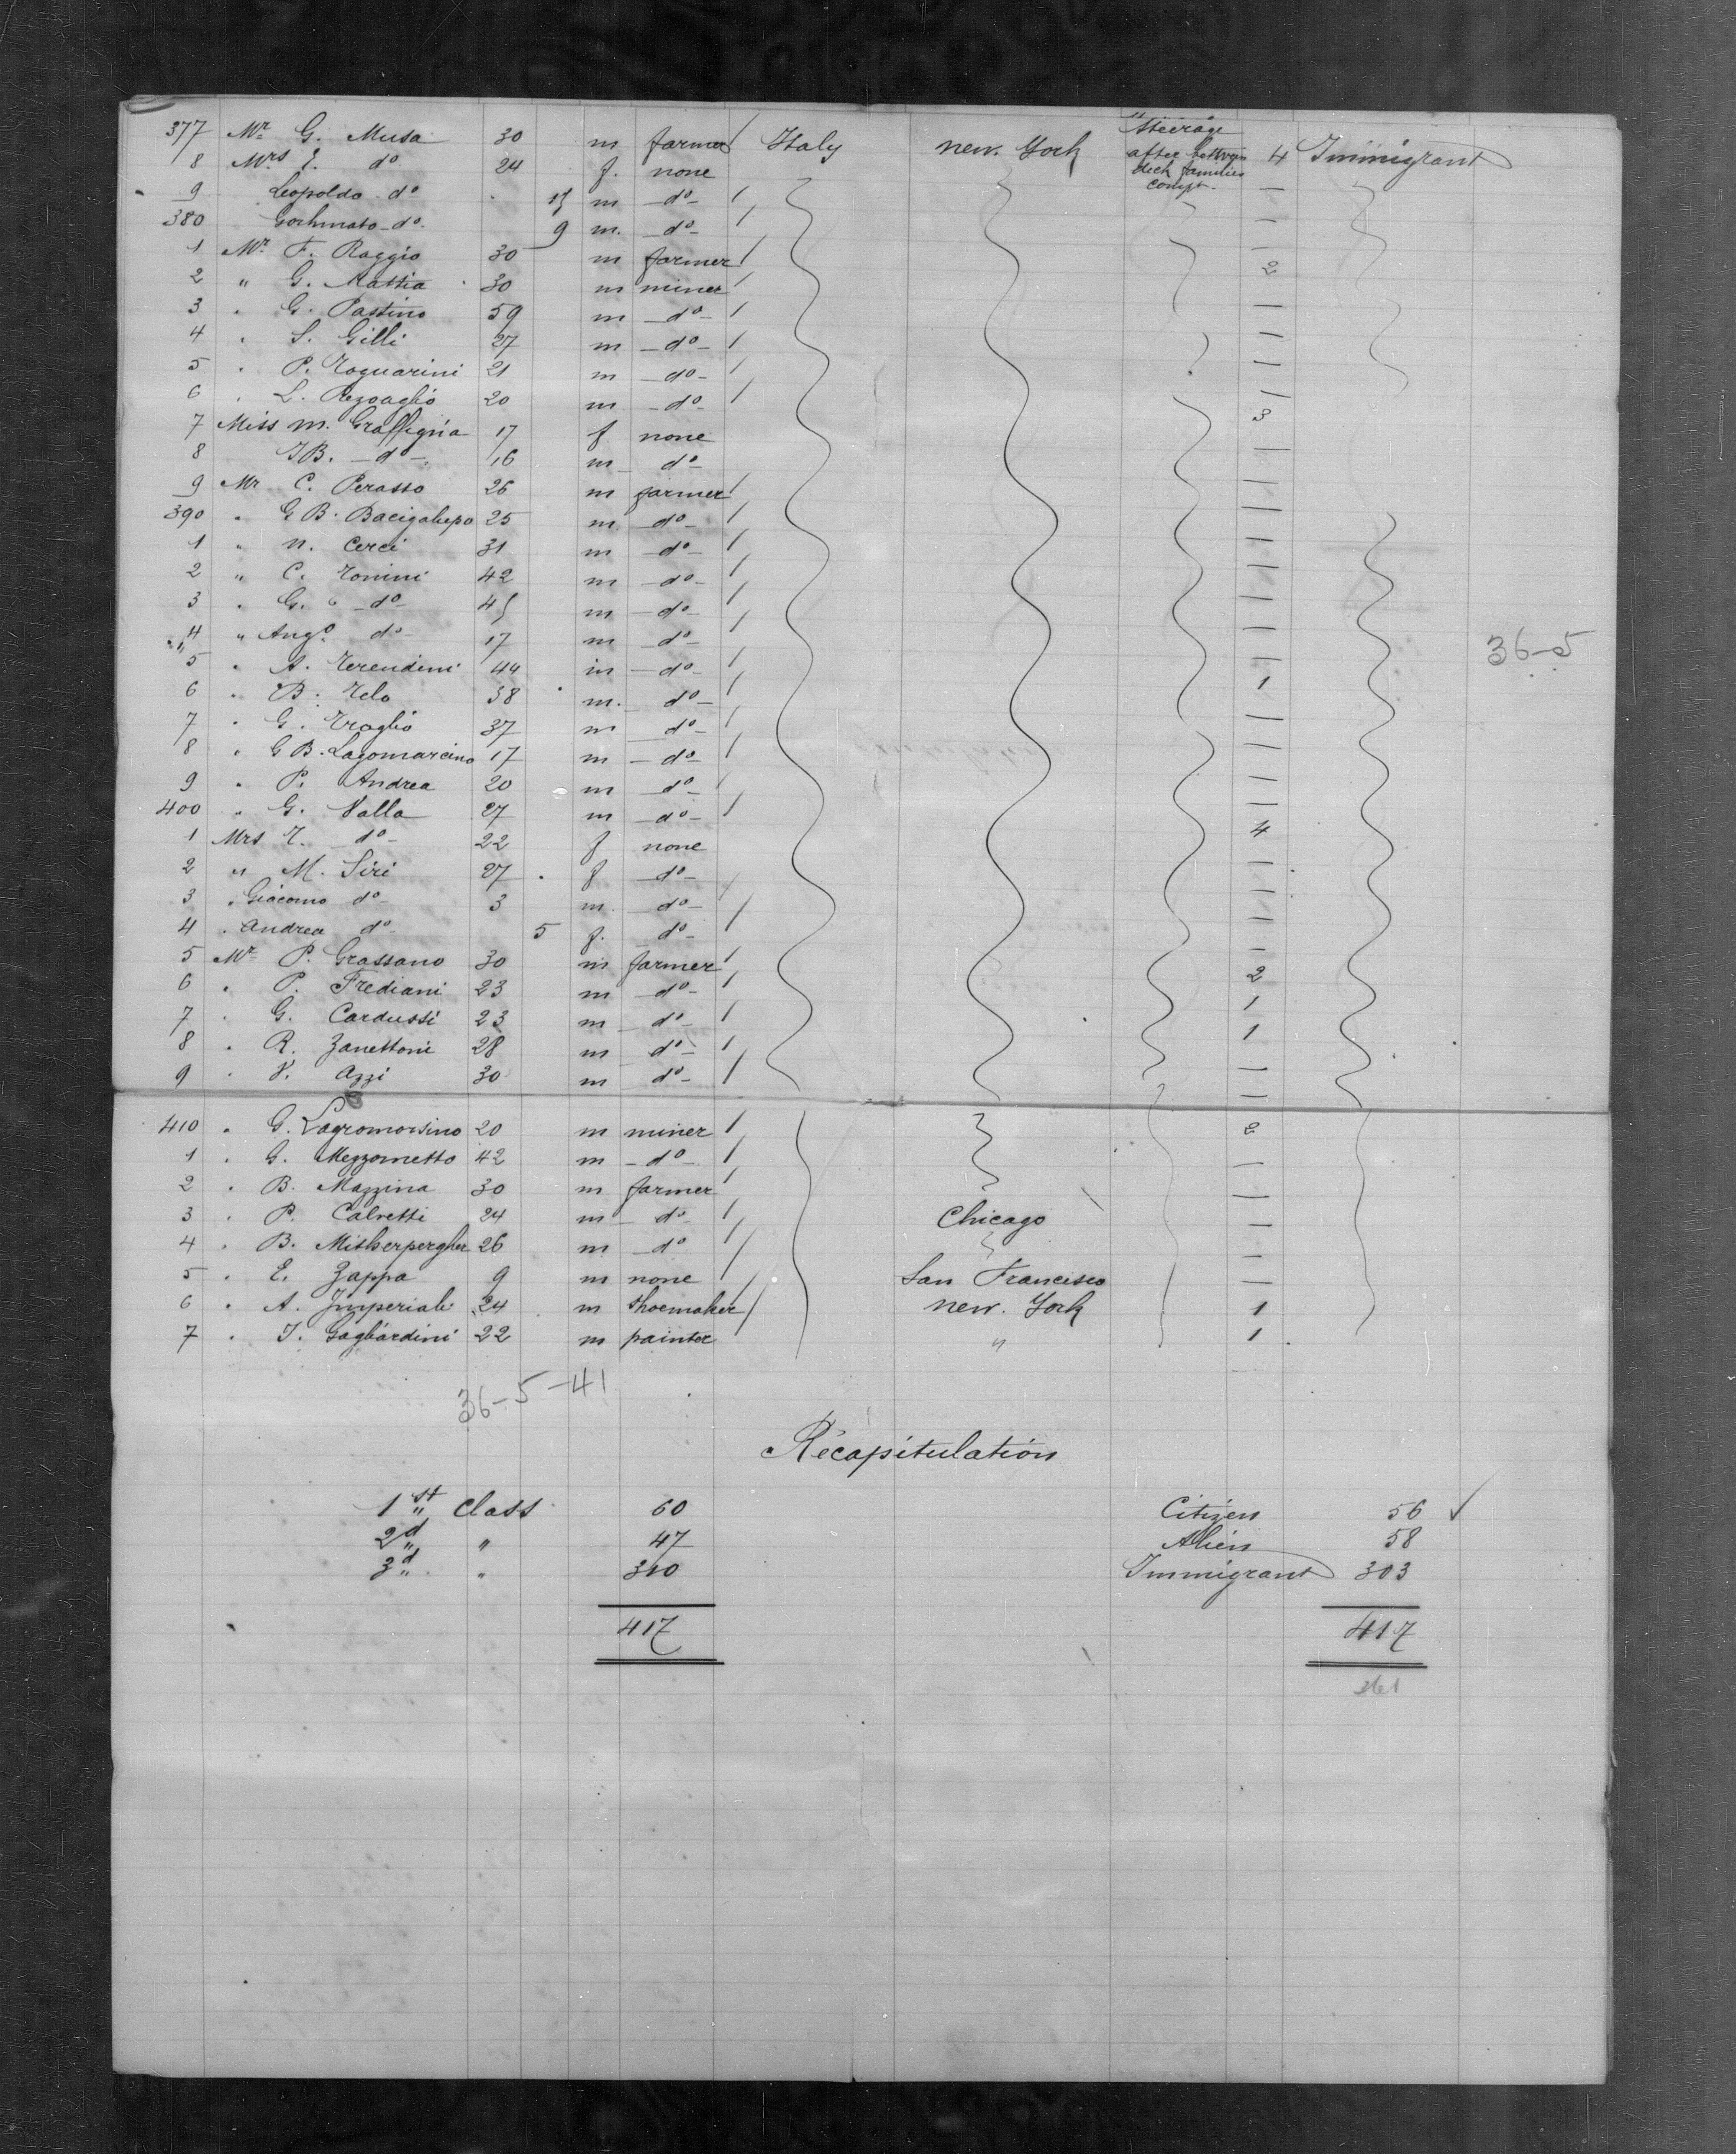 377 Mr G. Musa 30 m farmer Italy new. York Steerage after between deck families compt. 4 Immigrant
8 Mrs E. do 24 f. none
9 Leopoldo do m do —
380 do 9 m. do —
1 Mr F. Raggio 30 m farmer —
2 " G. Mattia 30 m miner 2
3 " G. Pastino 59 m do —
4 " S. Gilli 27 m do —
5 " P. Toguarini 21 m do —
6 " L. Rezoaglio 20 m do —
7 Miss M. Graffigna 17 f none 3
8 do 16 m do —
9 Mr C. Perasso 26 m farmer —
390 " G B. Bacigalupo 25 m. do —
1 " N. Cerci 31 m do —
2 " C. Tonini 42 m do —
3 " G. do 45 m do —
4 " Ango do 17 m do —
5 " A. Terendini 44 m do —
6 " B. Telo 38 m. do 1
7 " G. Troglio 37 m do —
8 " G B. Lagomarcino 17 m do —
9 " P. Andrea 20 m do —
400 " G. Valla 27 m do —
1 Mrs T. do 22 f none 4
2 " M. Siri 27 f do —
3 " Giacomo do 3 m. do —
4 " Andrea do 5 f. do —
5 Mr P. Grassano 30 m farmer —
6 " P. Frediani 23 m do 2
7 " G. Cardussi 23 m do 1
8 " R. Zanettoni 28 m do 1
9 " V. Azzi 30 m do —
410 " G. Lagromorsino 20 m miner 2
1 " G. Mezzometto 42 m do —
2 " B. Mazzina 30 m farmer —
3 " P. Calvetti 24 m do Chicago —
4 " B. Mitherpergher 26 m do —
5 " E. Zappa 9 m none San Francisco —
6 " A. Imperiali 24 m shoemaker new. York 1
7 " J. Gagliardini 22 m painter " 1
36-5
36-5-41
Récapitulation
1st Class 60 Citizen 56 ✓
2d " 47 Alien 58
3d " 310 Immigrant 303
417 417
361